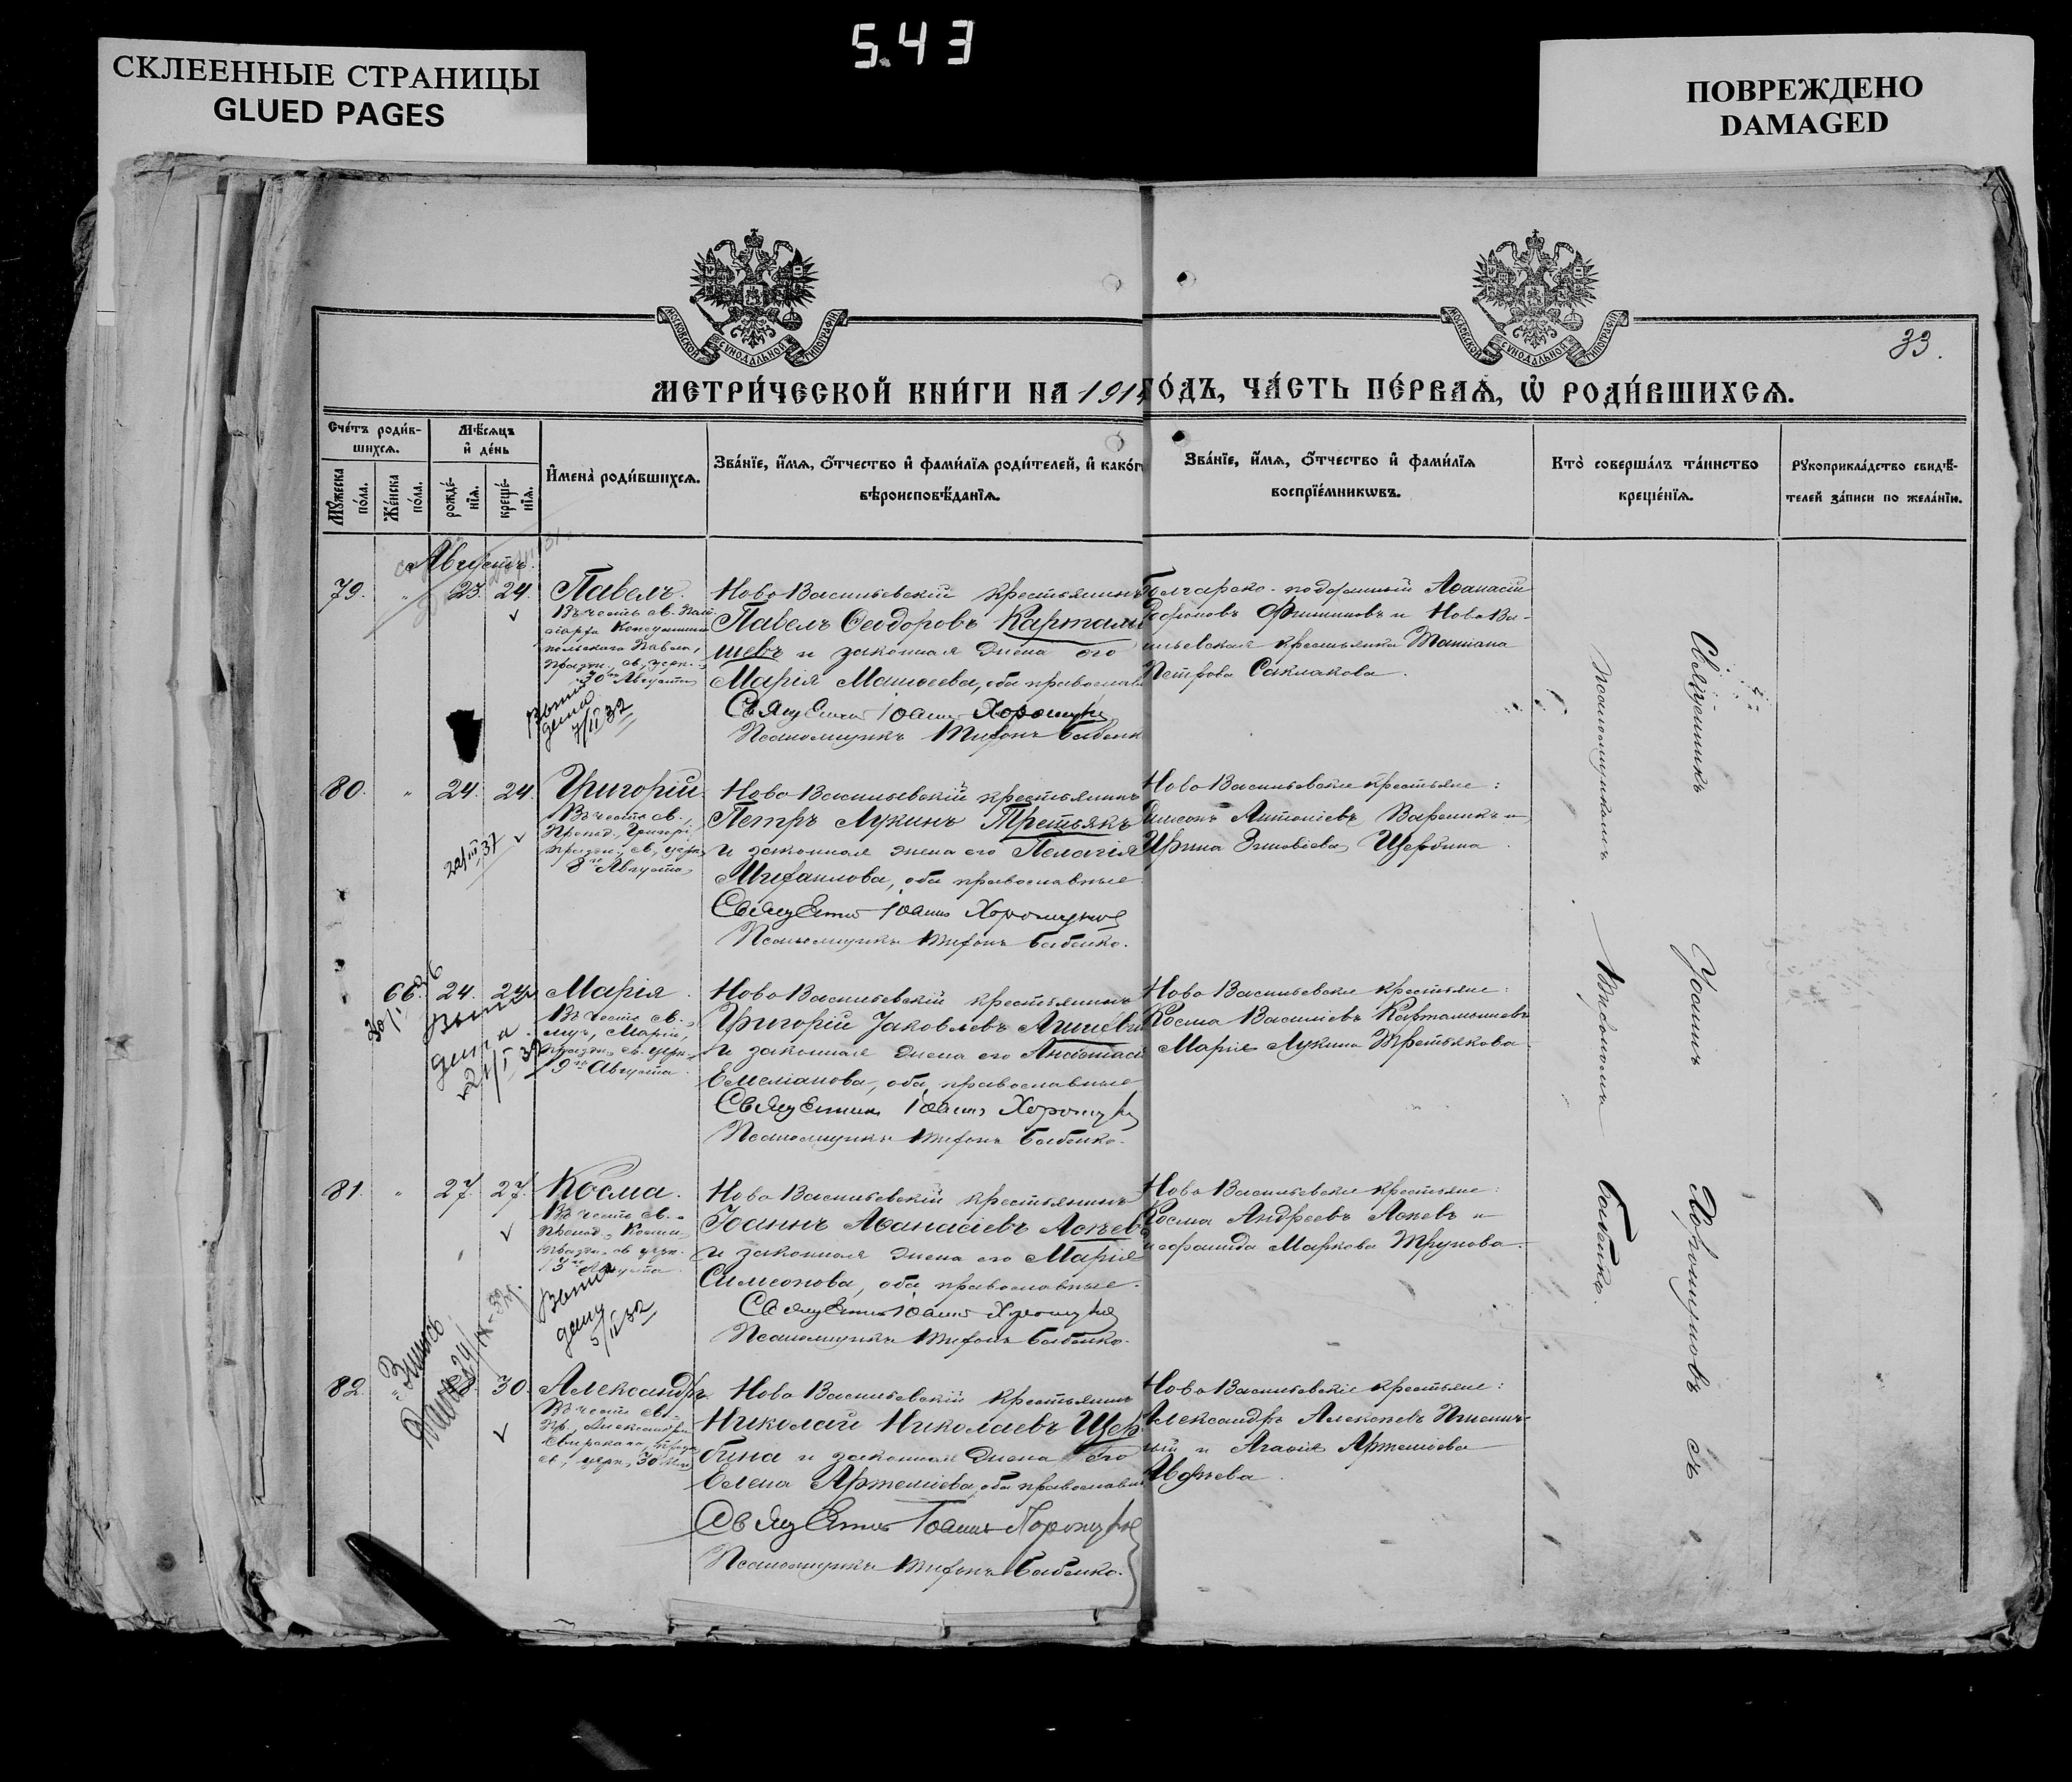 5.43
СКЛЕЕННЫЕ СТРАНИЦЫ
GLUED PAGES
ПОВРЕЖДЕНО
DAMAGED
МОСКОВСКОЙ СѴНОДАЛЬНОЙ ТИПОГРАФІИ
МОСКОВСКОЙ СѴНОДАЛЬНОЙ ТИПОГРАФІИ
33.
МЕТРИ́ЧЕСКОЙ КНИ́ГИ НА 1914 ГО́ДЪ, ЧА́СТЬ ПЕ́РВАѦ, Ѡ҆ РОДИ́ВШИХСѦ.
Сче́тъ роди́в-
шихсѧ.
Мꙋ́жеска по́ла.
Же́нска по́ла.
Мѣ́сѧцъ
и҆ де́нь
рожде́-
нїѧ.
креще́-
нїѧ.
И҆мена̀ роди́вшихсѧ.
Зва́нїе, и҆́мѧ, ѻ҆́тчество и҆ фами́лїѧ роди́телей, и҆ како́гѡ
вѣроисповѣ́данїѧ.
Зва́нїе, и҆́мѧ, ѻ҆́тчество и҆ фами́лїѧ
воспрїе́мникѡвъ.
Кто̀ соверша́лъ та́инство
креще́нїѧ.
Рꙋкоприкла́дство свидѣ́-
телей за́писи по жела́нїю.
Августъ.
79. " 23. 24. Павелъ.
Въ честь св. Пат-
ріарха Константино
польскаго Павла,
праздн. св. церк.
30го Августа
7/II 32
Ново Васильевскій крестьянинъ
Павелъ Ѳеодоровъ Картамы
шевъ и законная жена его
Марія Матвеева, оба православн
Священникъ Іоаннъ Хорошуновъ
Псаломщикъ Тихонъ Бабенк
Болгарско-подданный Аѳанасій
и Ново Ва-
сильевская крестьянка Татіана
Петрова Саклакова.
80. " 24. 24. Григорій.
Въ честь св.
препод. Григорі
праздн. св. церк.
8го Августа
Ново Васильевскій крестьянинъ
Петръ Лукинъ Третьякъ
и законная жена его Пелагія
Михаилова, оба православные
Священникъ Іоаннъ Хорошуновъ
Псаломщикъ Тихонъ Бабенко.
Ново Васильевскіе крестьяне:
Симеонъ Антоніевъ Вареникъ и
Ирина Зиновіева Щербина.
66. 24. 24. Марія.
Въ честь св.
муч. Маріи,
праздн. св. церк.
9го Августа.
Ново Васильевскій крестьянинъ
Григорій Іаковлевъ
и законная жена его Анастасі
Емеліанова, оба православные
Священникъ Іоаннъ Хорошуновъ
Псаломщикъ Тихонъ Бабенко.
Ново Васильевскіе крестьяне:
Косма Василіевъ Картамышевъ
Марія Лукина Третьякова
81. " 27. 27. Косма.
Въ честь св.
препод. Космы
праздн. св. церк.
Августа.
5/II 32
Ново Васильевскій крестьянинъ
Іоаннъ Аѳанасіевъ Аспѣевъ
и законная жена его Марія
Симеонова, оба православные.
Священникъ Іоаннъ Хорошуновъ
Псаломщикъ Тихонъ Бабенко.
Ново Васильевскіе крестьяне:
Косма Андреевъ Аспевъ и
Маркова Трунова.
82. " 30. Александръ
Въ честь св.
Пр. Александра
Свирскаго, празд
св. церк. 30
Ново Васильевскій крестьянинъ
Николай Николаевъ Щер
бина и законная жена его
Елена Артеміева, оба православн
Священникъ Іоаннъ Хорошуновъ
Псаломщикъ Тихонъ Бабенко.
Ново Васильевскіе крестьяне:
Александръ Алексіевъ Пшенич-
ный и Агаѳія Артеміева
Священникъ Іоаннъ Хорошуновъ съ
псаломщикомъ Тихономъ Бабенко.